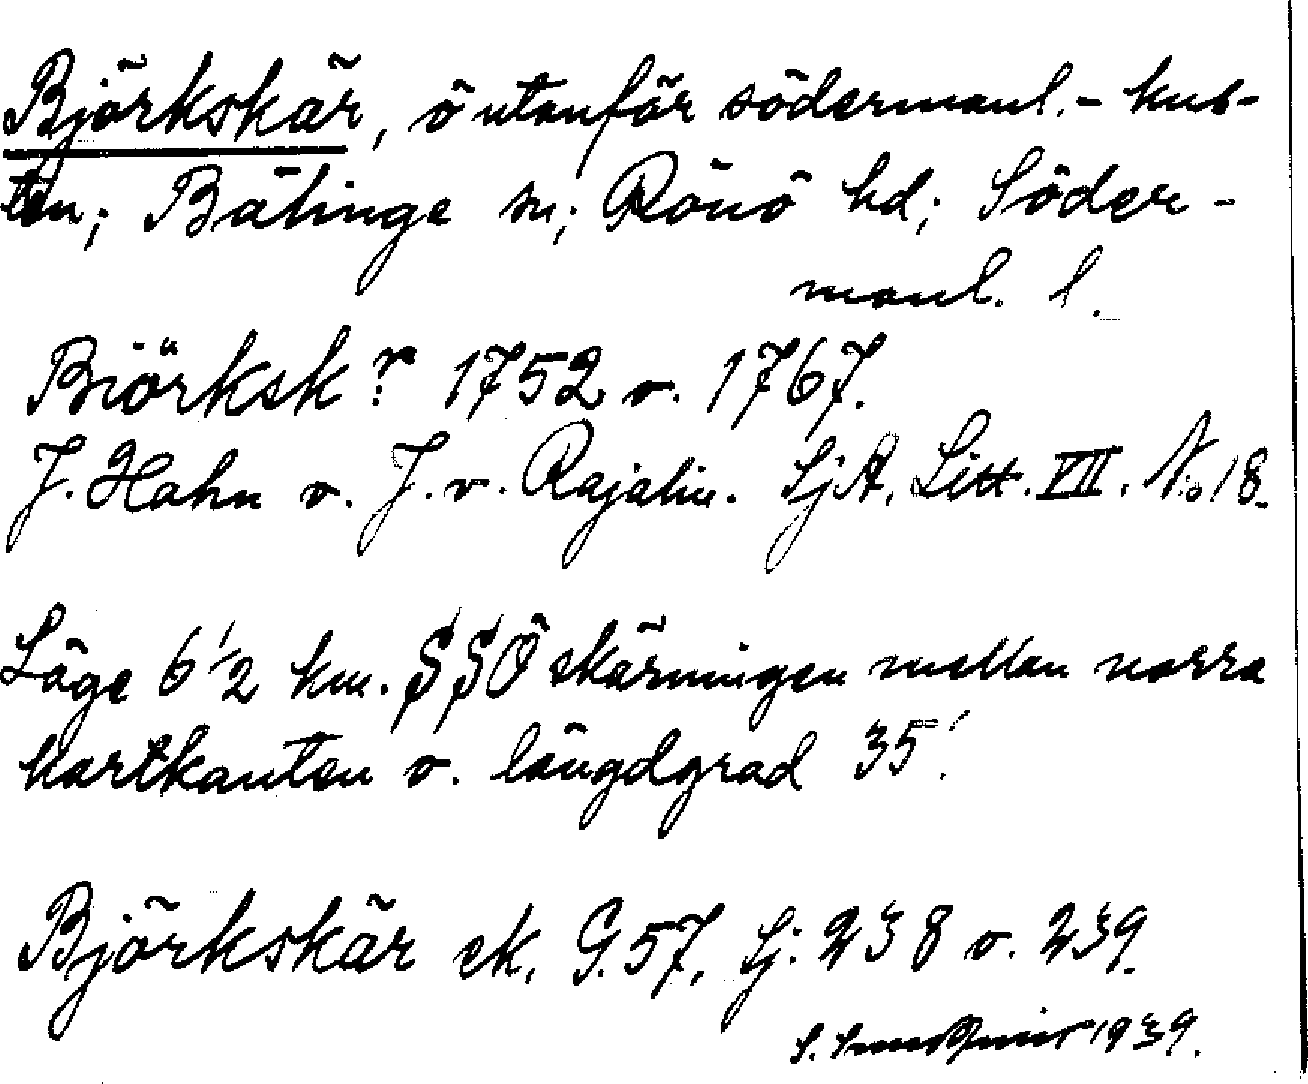 Björkskär, ö utanför södermanl.- kus-
ten; Bälinge sn; Rönö hd; Söder-
manl. l.
Biörksk r 1752 o. 1767.
J. Hahn o. J. v. Rajalin. SjA, Litt. VII. No 18.
Läge 6 1/2 km. SSÖ skärningen mellan norra
kartkanten o. längdgrad 35'.
Björkskär ek. G. 57, Sj: 238 o. 239.
S. 1939.